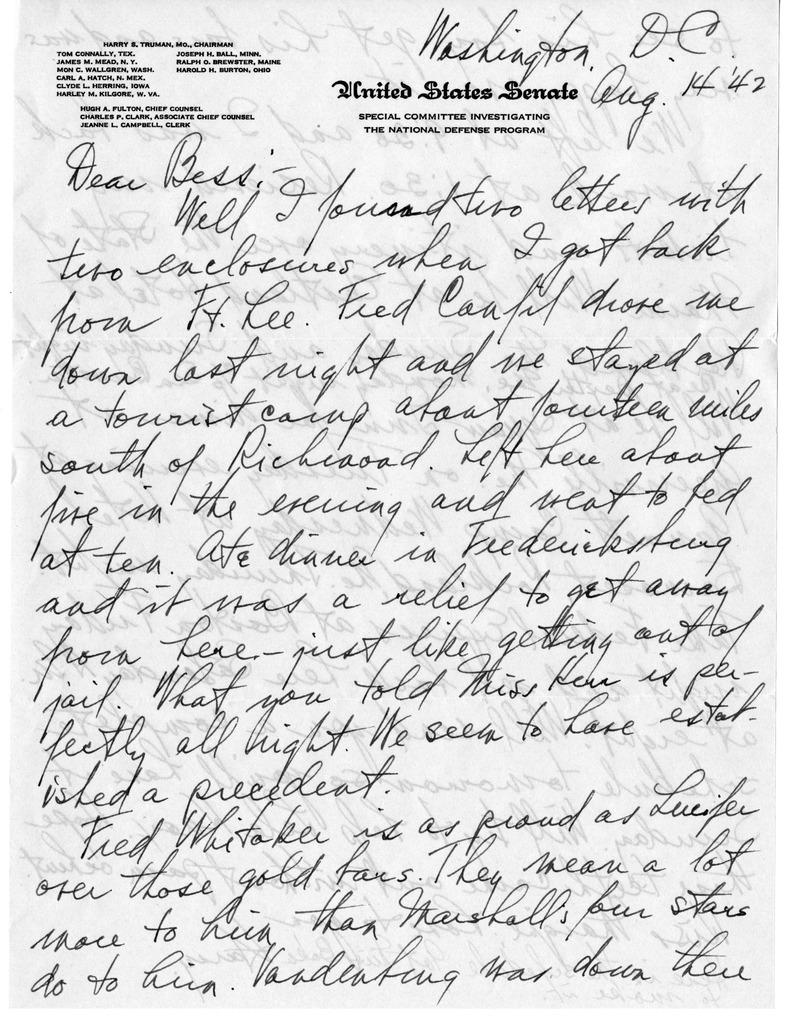 HARRY S. TRUMAN, MO., CHAIRMAN
TOM CONNALLY, TEX. JOSEPH H. BALL, MINN.
JAMES M. MEAD, N. Y. RALPH O. BREWSTER, MAINE
MON C. WALLGREN, WASH. HAROLD H. BURTON, OHIO
CARL A. HATCH, N. MEX.
CLYDE L. HERRING, IOWA
HARLEY M. KILGORE, W. VA.
HUGH A. FULTON, CHIEF COUNSEL
CHARLES P. CLARK, ASSOCIATE CHIEF COUNSEL
JEANNE L. CAMPBELL, CLERK
Washington, D.C.
United States Senate
Aug. 14 '42
SPECIAL COMMITTEE INVESTIGATING
THE NATIONAL DEFENSE PROGRAM
Dear Bess:—
Well I found two letters with
two enclosures when I got back
from Ft. Lee. Fred Canfil drove me
down last night and we stayed at
a tourist camp about fourteen miles
south of Richmond. Left here about
five in the evening and went to bed
at ten. Ate dinner in Fredericksburg
and it was a relief to get away
from here—just like getting out of
jail. What you told Miss Kerr is per-
fectly all right. We seem to have estab-
ished a precedent.
Fred Whitaker is as proud as Lucifer
over those gold bars. They mean a lot
more to him than Marshall's four stars
do to him. Vandenburg was down there